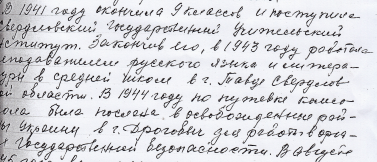 В 1941 году окончила 9 классов и поступила
Свердловский Государственный Учительский
нститут. Закончив его, в 1943 году работала
еподавателем русского языка и литера-
уры в средней школе в г. Тавде Свердлов-
ой области. В 1944 году по путевке комсо-
ола была послана в освобожденные рай-
ы Украины в г. Дрогобич для работы в орга-
х Государственной безопасности. В Августе